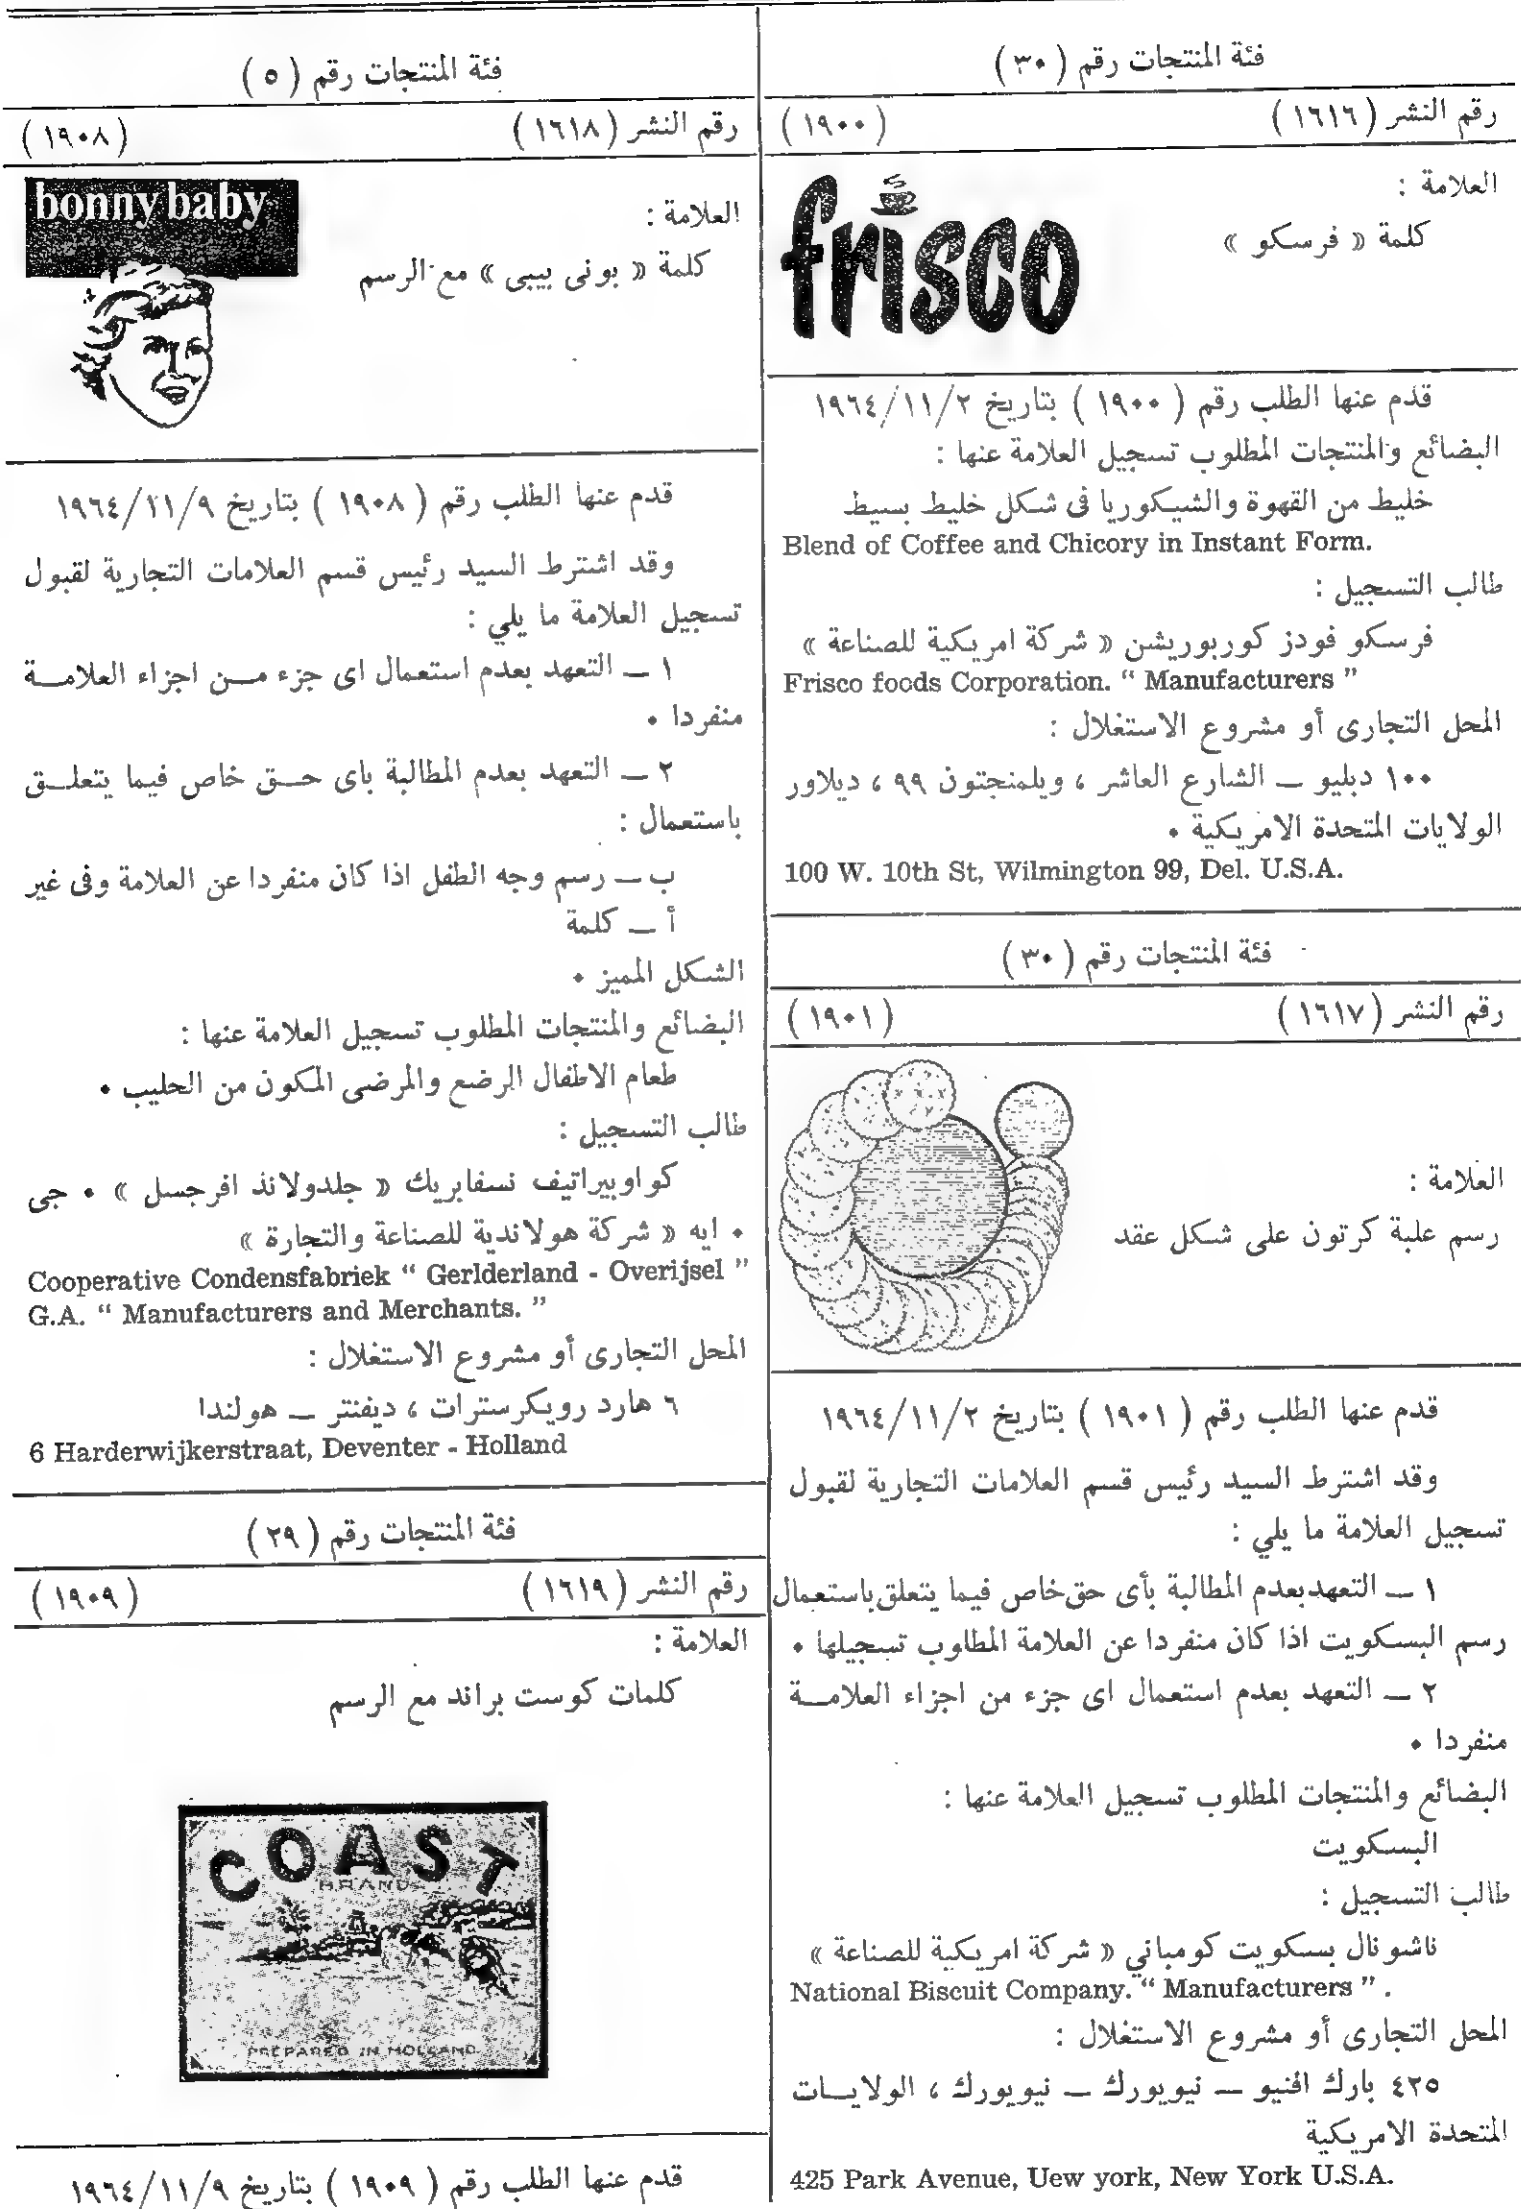 فئة المنتجات رقم ( ٣٠ )
رقم النشر ( ١٦١٦ ) ( ١٩٠٠ )
العلامة :
كلمة « فرسكو »
frisco
قدم عنها الطلب رقم ( ١٩٠٠ ) بتاريخ ١٩٦٤/١١/٢
البضائع والمنتجات المطلوب تسجيل العلامة عنها :
خليط من القهوة والشيكوريا فى شكل خليط بسيط
Blend of Coffee and Chicory in Instant Form.
طالب التسجيل :
فرسكو فودز كوربوريشن « شركة امريكية للصناعة »
Frisco foods Corporation. “ Manufacturers ”
المحل التجارى أو مشروع الاستغلال :
١٠٠ دبليو — الشارع العاشر ، ويلمنجتون ٩٩ ، ديلاور
الولايات المتحدة الامريكية .
100 W. 10th St, Wilmington 99, Del. U.S.A.
فئة المنتجات رقم ( ٣٠ )
رقم النشر ( ١٦١٧ ) ( ١٩٠١ )
العلامة :
رسم علبة كرتون على شكل عقد
قدم عنها الطلب رقم ( ١٩٠١ ) بتاريخ ١٩٦٤/١١/٢
وقد اشترط السيد رئيس قسم العلامات التجارية لقبول
تسجيل العلامة ما يلي :
١ — التعهد بعدم المطالبة بأى حق خاص فيما يتعلق باستعمال
رسم البسكويت اذا كان منفردا عن العلامة المطاوب تسجيلها .
٢ — التعهد بعدم استعمال اى جزء من اجزاء العلامـــة
منفردا .
البضائع والمنتجات المطلوب تسجيل العلامة عنها :
البسكويت
طالب التسجيل :
ناشونال بسكويت كومباني « شركة امريكية للصناعة »
National Biscuit Company. “ Manufacturers ” .
المحل التجارى أو مشروع الاستغلال :
٤٢٥ بارك افنيو — نيويورك — نيويورك ، الولايـــات
المتحدة الامريكية
425 Park Avenue, Uew york, New York U.S.A.
فئة المنتجات رقم ( ٥ )
رقم النشر ( ١٦١٨ ) ( ١٩٠٨ )
bonny baby
العلامة :
كلمة « بونى بيبى » مع الرسم
قدم عنها الطلب رقم ( ١٩٠٨ ) بتاريخ ١٩٦٤/١١/٩
وقد اشترط السيد رئيس قسم العلامات التجارية لقبول
تسجيل العلامة ما يلي :
١ — التعهد بعدم استعمال اى جزء مـــن اجزاء العلامـــة
منفردا .
٢ — التعهد بعدم المطالبة باى حـــق خاص فيما يتعلـــق
باستعمال :
ب — رسم وجه الطفل اذا كان منفردا عن العلامة وفى غير
أ — كلمة
الشكل المميز .
البضائع والمنتجات المطلوب تسجيل العلامة عنها :
طعام الاطفال الرضع والمرضى المكون من الحليب .
طالب التسجيل :
كواوبيراتيف نسفابريك « جلدولاند افرجسل » . جى
. ايه « شركة هولاندية للصناعة والتجارة »
Cooperative Condensfabriek “ Gerlderland - Overijsel ”
G.A. “ Manufacturers and Merchants. ”
المحل التجارى أو مشروع الاستغلال :
٦ هارد رويكرسترات ، ديفنتر — هولندا
6 Harderwijkerstraat, Deventer - Holland
فئة المنتجات رقم ( ٢٩ )
رقم النشر ( ١٦١٩ ) ( ١٩٠٩ )
العلامة :
كلمات كوست براند مع الرسم
COAST
BRAND
PREPARED IN HOLLAND
قدم عنها الطلب رقم ( ١٩٠٩ ) بتاريخ ١٩٦٤/١١/٩